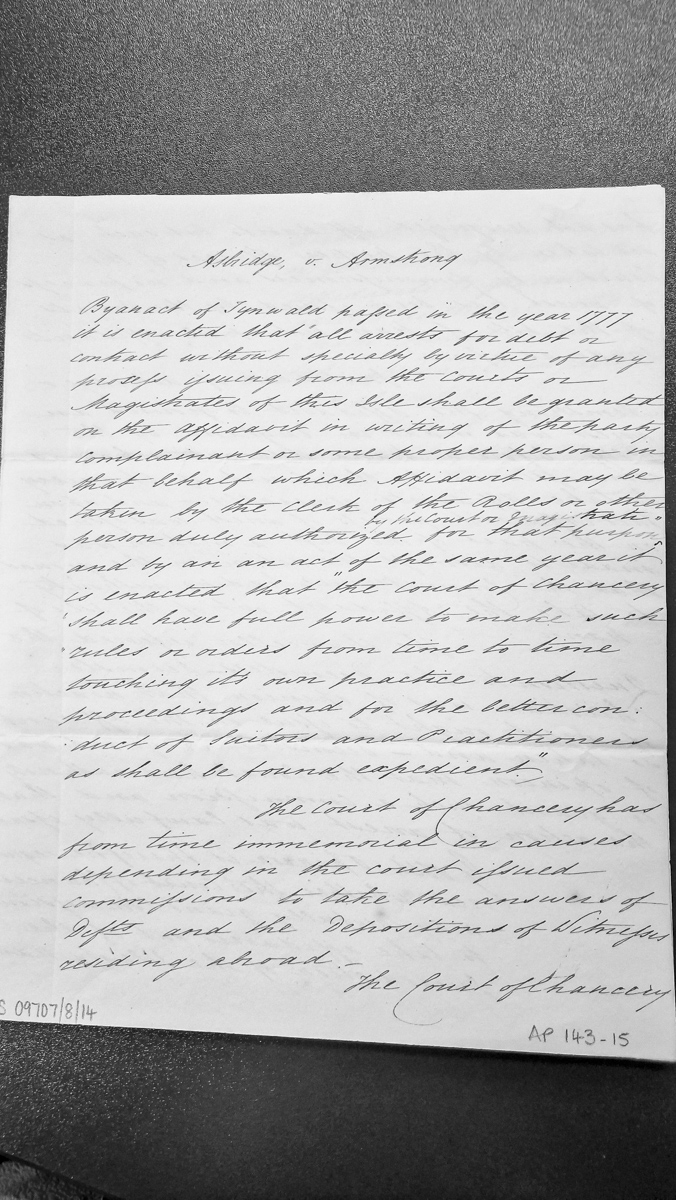 Asbridge, v. Armstrong
By an act of Tynwald passed in the year 1777
it is enacted that "all arrests for debt or
contract without specialty by virtue of any
process issuing from the Courts or
Magistrates of this Isle shall be granted
on the affidavit in writing of the party
complainant or some proper person in
that behalf which Affidavit may be
taken by the Clerk of the Rolls or other
by the Court or Magistrate
person duly authorized for that purpose"
and by an an act of the same year it
is enacted that "the Court of Chancery
"shall have full power to make such
"rules or orders from time to time
touching its own practice and
proceedings and for the better con:
duct of Suitors and Practitioners
as shall be found expedient."
The Court of Chancery has
from time immemorial in causes
depending in the court issued
commissions to take the answers of
Defts and the Depositions of Witnesses
residing abroad –
The Court of Chancery
S 09707/8/14
AP 143-15